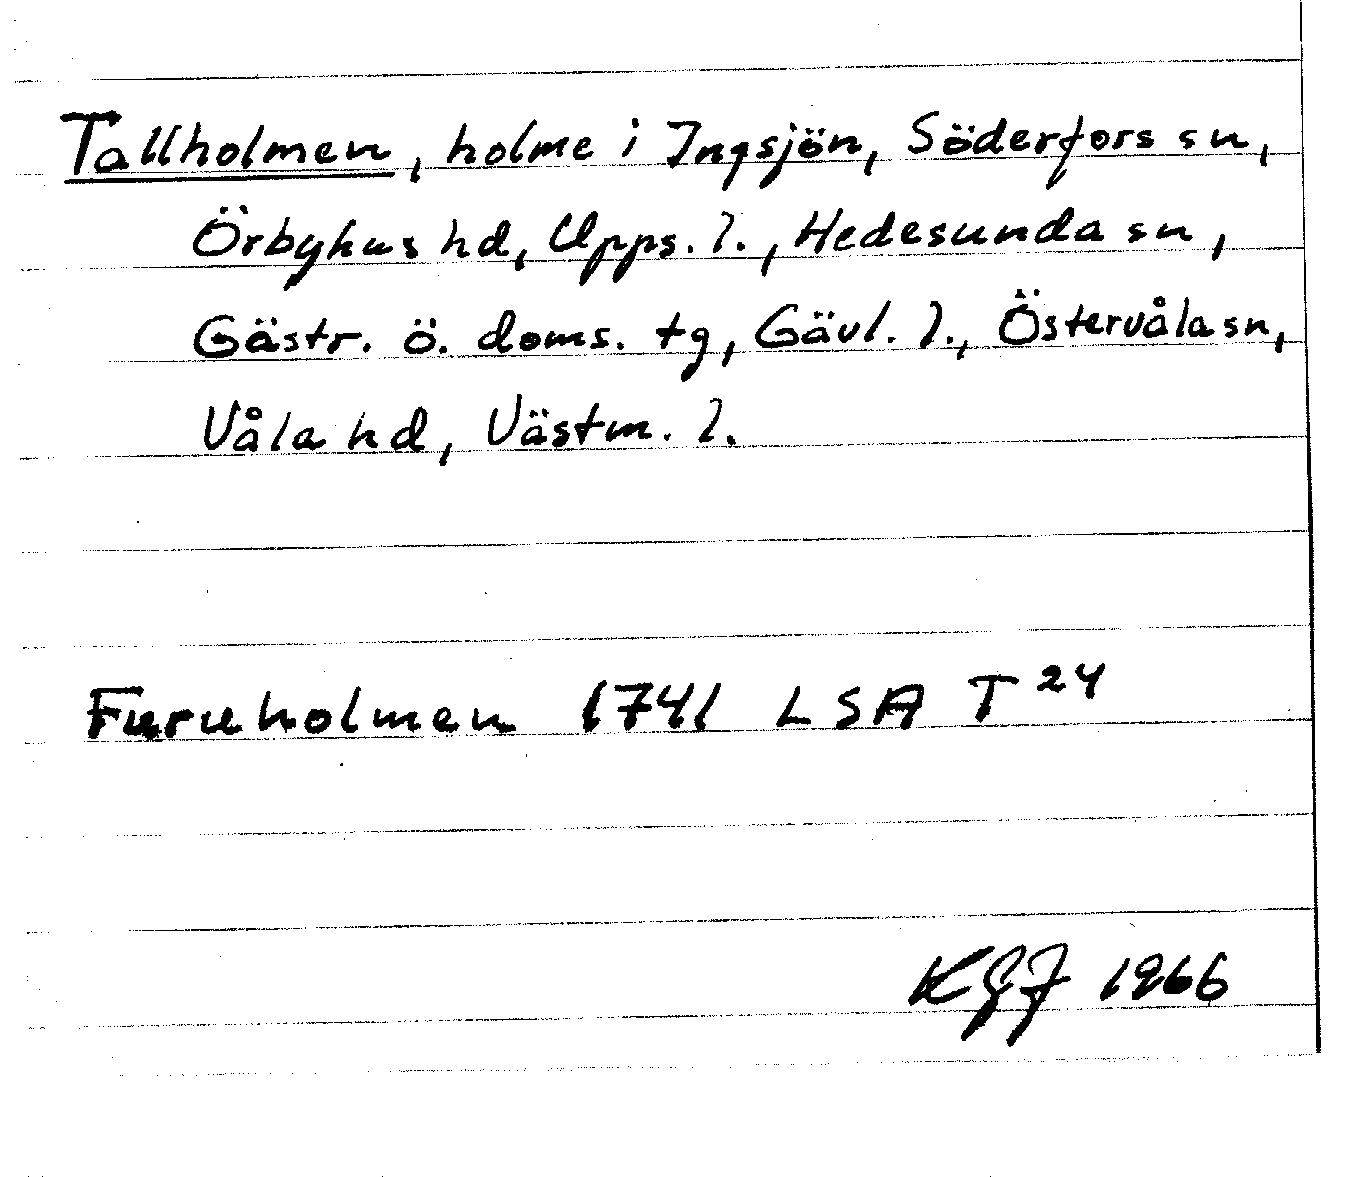 Tallholmen, holme i Ingsjön, Söderfors sn,
Örbyhus hd, Upps. l., Hedesunda sn,
Gästr. ö. doms. tg, Gävl. l., Östervåla sn,
Våla hd, Västm. l.
Furuholmen 1741 LSA T 24
KGF 1966